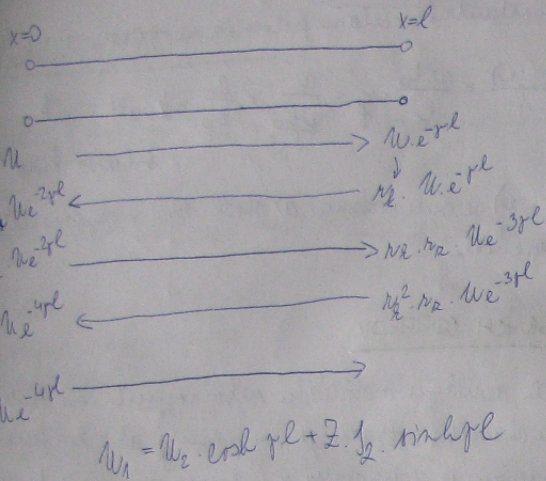 x=0 x=l
U U·e^-γl
Ue^-2γl r_k·U·e^-γl
·Ue^-2γl r_k·r_a·Ue^-3γl
Ue^-4γl r_k^2·r_a·Ue^-3γl
Ue^-4γl
U_1 = U_2·cosh γl + Z·I_2·sinh γl